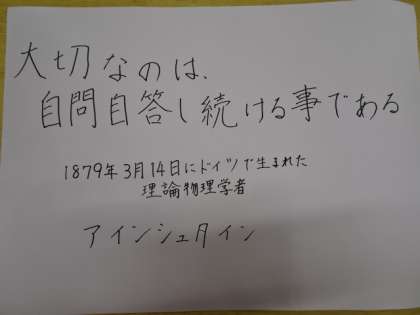 大切なのは、
自問自答し続ける事である
1879年3月14日にドイツで生まれた
理論物理学者
アインシュタイン